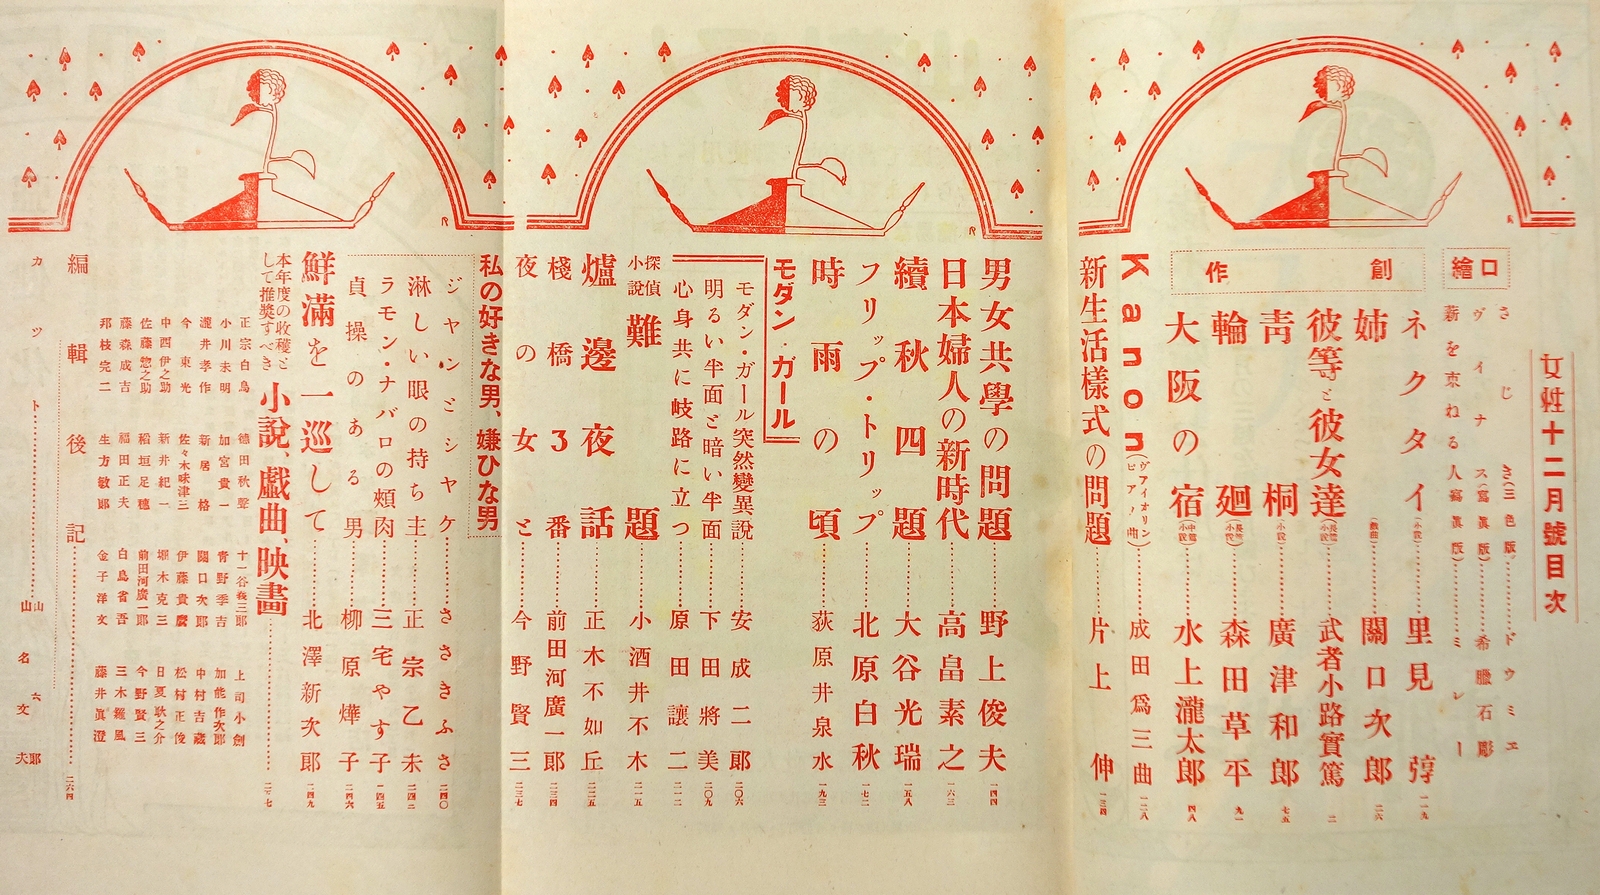 女性十二月號目次
口繪
さじき(三色版)……ドウミエ
ヴイナス(寫眞版)……希臘石彫
薪を束ねる人(寫眞版)……ミレー
創作
ネクタイ(小說)……里見弴 一一九
姉(戲曲)……關口次郎 二六
彼等と彼女達(長篇小說)……武者小路實篤 二
靑桐(小說)……廣津和郎 七五
輪廻(長篇小說)……森田草平 九一
大阪の宿(中篇小說)……水上瀧太郎 四八
Kanon(ヴァイオリンピアノ曲)……成田爲三曲 一二八
新生活樣式の問題……片上伸 一三四
男女共學の問題……野上俊夫 一四四
日本婦人の新時代……高畠素之 一六三
續秋四題……大谷光瑞 一五八
フリップ・トリップ……北原白秋 一七二
時雨の頃……荻原井泉水 一九三
モダン・ガール
モダン・ガール突然變異說……安成二郎 二〇六
明るい半面と暗い半面……下田將美 二〇九
心身共に岐路に立つ……原田讓二 二一二
探偵小說 難題……小酒井不木 二一五
爐邊夜話……正木不如丘 二二五
棧橋3番……前田河廣一郎 二三四
夜の女と……今野賢三 二三七
私の好きな男、嫌ひな男
ジヤンとシヤケ……ささきふさ 二四〇
淋しい眼の持ち主……正宗乙未 二四二
ラモン・ナバロの頰肉……三宅やす子 二四五
貞操のある男……柳原燁子 二四六
鮮滿を一巡して……北澤新次郎 二四九
本年度の收穫として推奬すべき 小說、戲曲、映畫…… 二一七
正宗白鳥 德田秋聲 十一谷義三郎 上司小劍
小川未明 加宮貴一 靑野季吉 加能作次郎
瀧井孝作 新居格 關口次郎 中村吉藏
今東光 佐々木味津三 伊藤貴麿 松村正俊
中西伊之助 新井紀一 堀木克三 日夏耿之介
佐藤惣之助 稻垣足穗 前田河廣一郎 今野賢三
藤森成吉 福田正夫 白鳥省吾 三木羅風
邦枝完二 生方敏郎 金子洋文 藤井眞澄
編輯後記…… 二六四
カット……山六郎
山名文夫